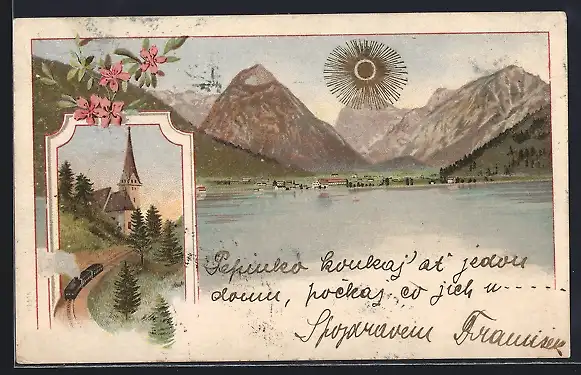 Pepinko koukaj ať jedou
domu, počkaj co jich u-----
Spozdravem Frantisek